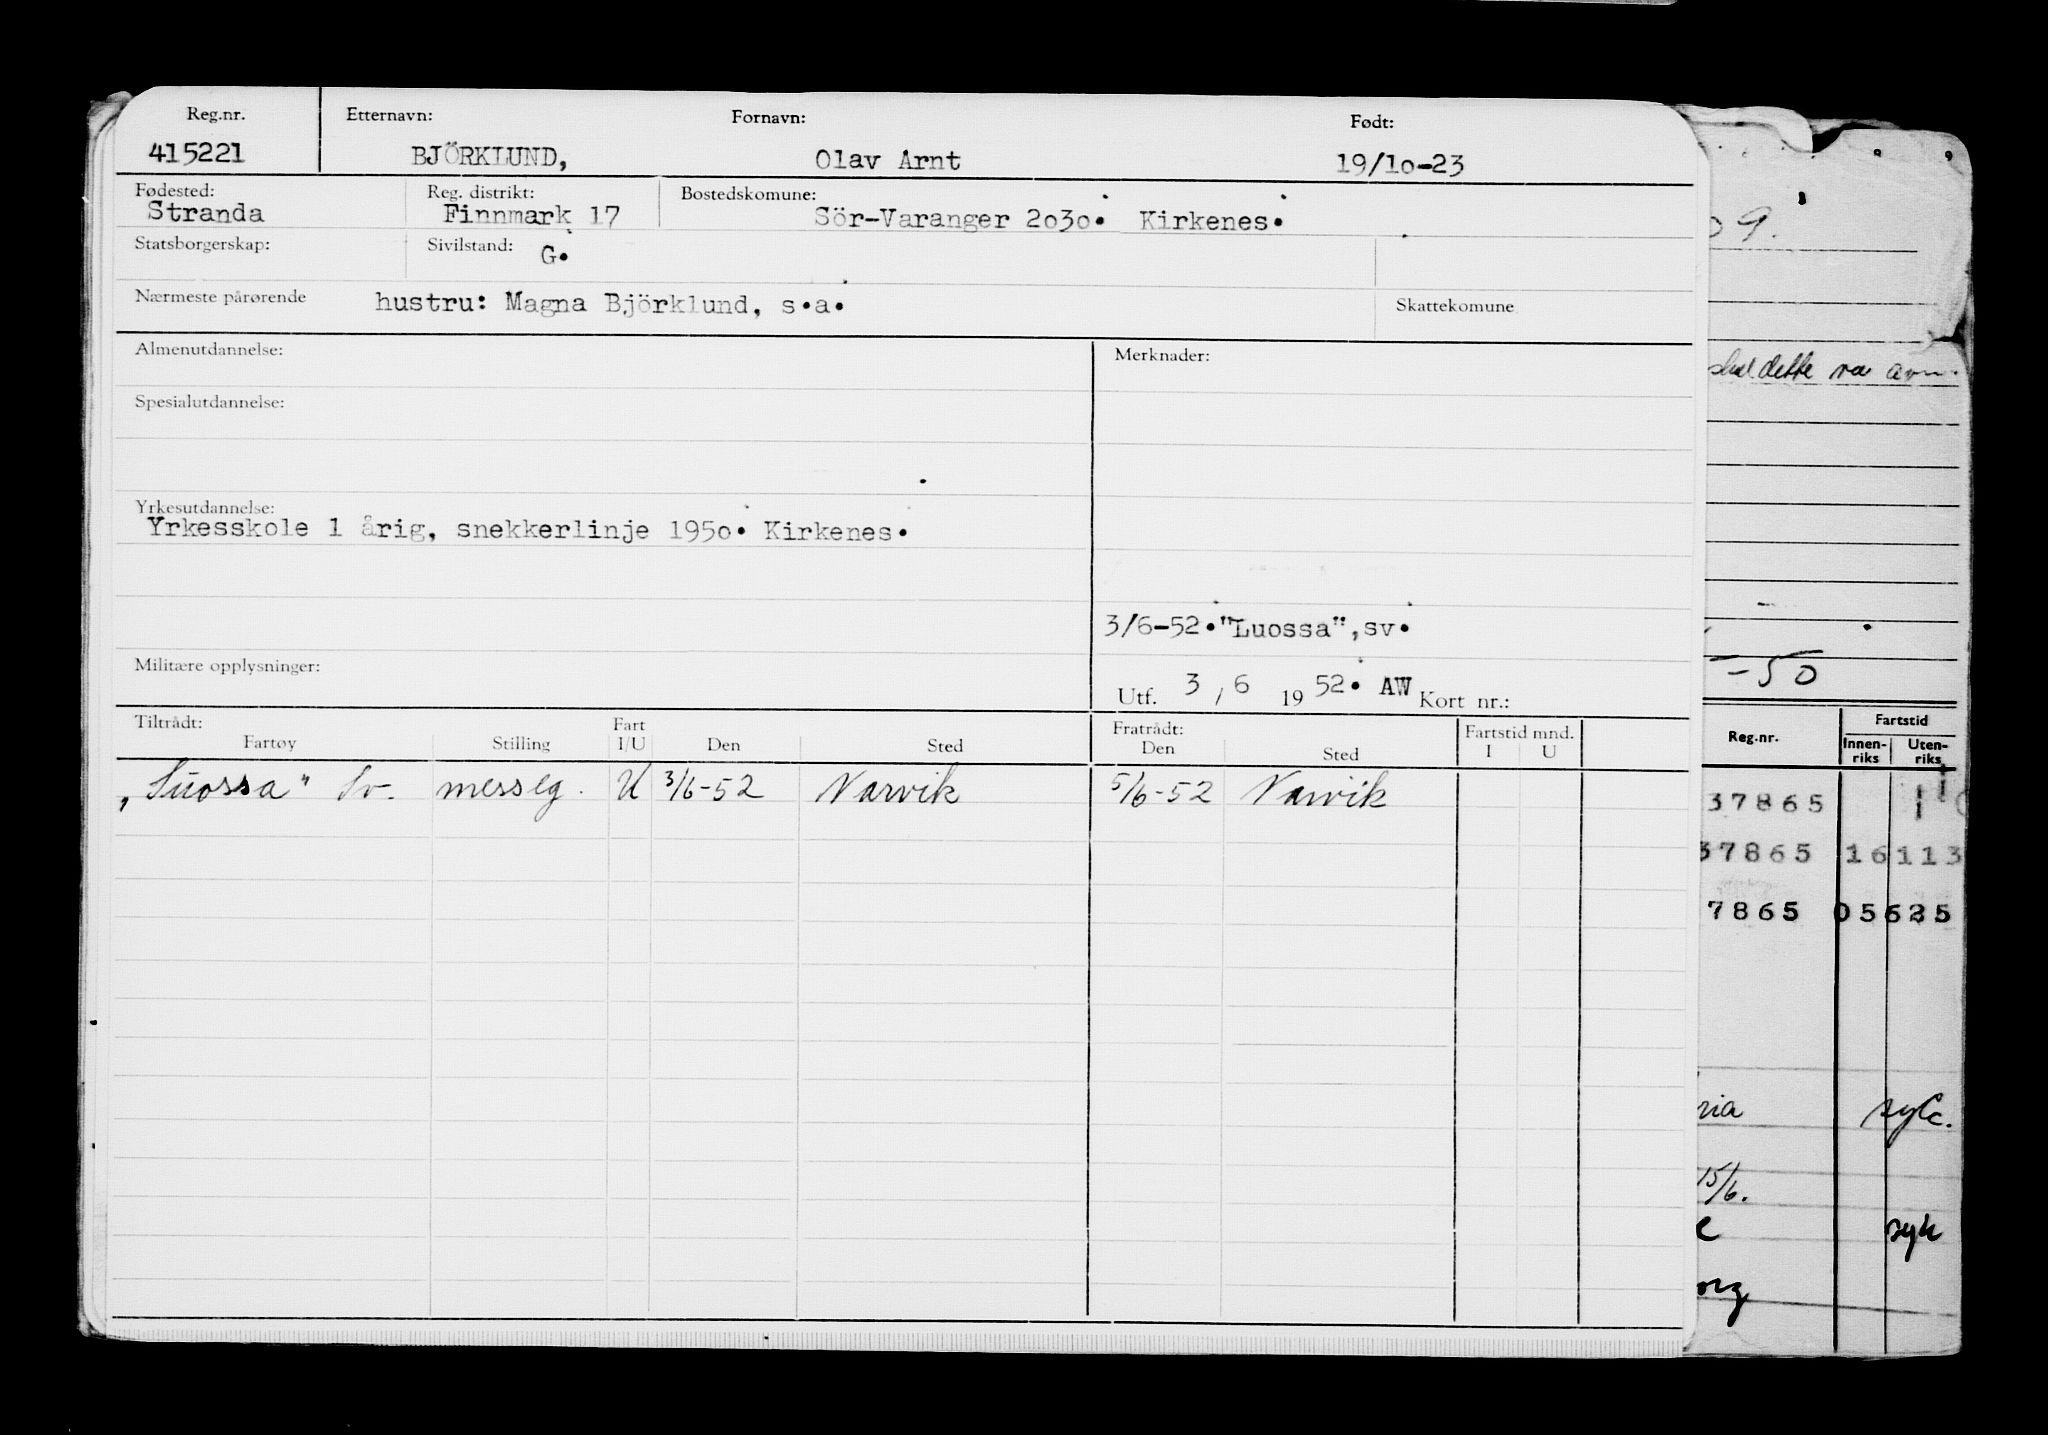 Reg.nr. Etternavn: Fornavn: Født:
415221 BJÖRKLUND, Olav Arnt 19/10-23
Fødested: Reg. distrikt: Bostedskomune:
Stranda Finnmark 17 Sör-Varanger 2030. Kirkenes.
Statsborgerskap: Sivilstand: G.
Nærmeste pårørende hustru: Magna Björklund, s.a. Skattekomune
Almenutdannelse: Merknader:
Spesialutdannelse:
Yrkesutdannelse:
Yrkesskole 1 årig, snekkerlinje 1950. Kirkenes.
3/6-52."Luossa",sv.
Militære opplysninger:
Utf. 3 / 6 19 52. AW Kort nr.:
Tiltrådt: Fart Fratrådt: Fartstid mnd.
Fartøy Stilling I/U Den Sted Den Sted I U
„Luossa" Sv. messeg. U 3/6-52 Narvik 5/6-52 Narvik
09.
dette
-50
Reg.nr. Fartstid
Innen-riks Uten-riks
37865
37865 16113
7865 05625
ria syk.
15/6.
syk
org